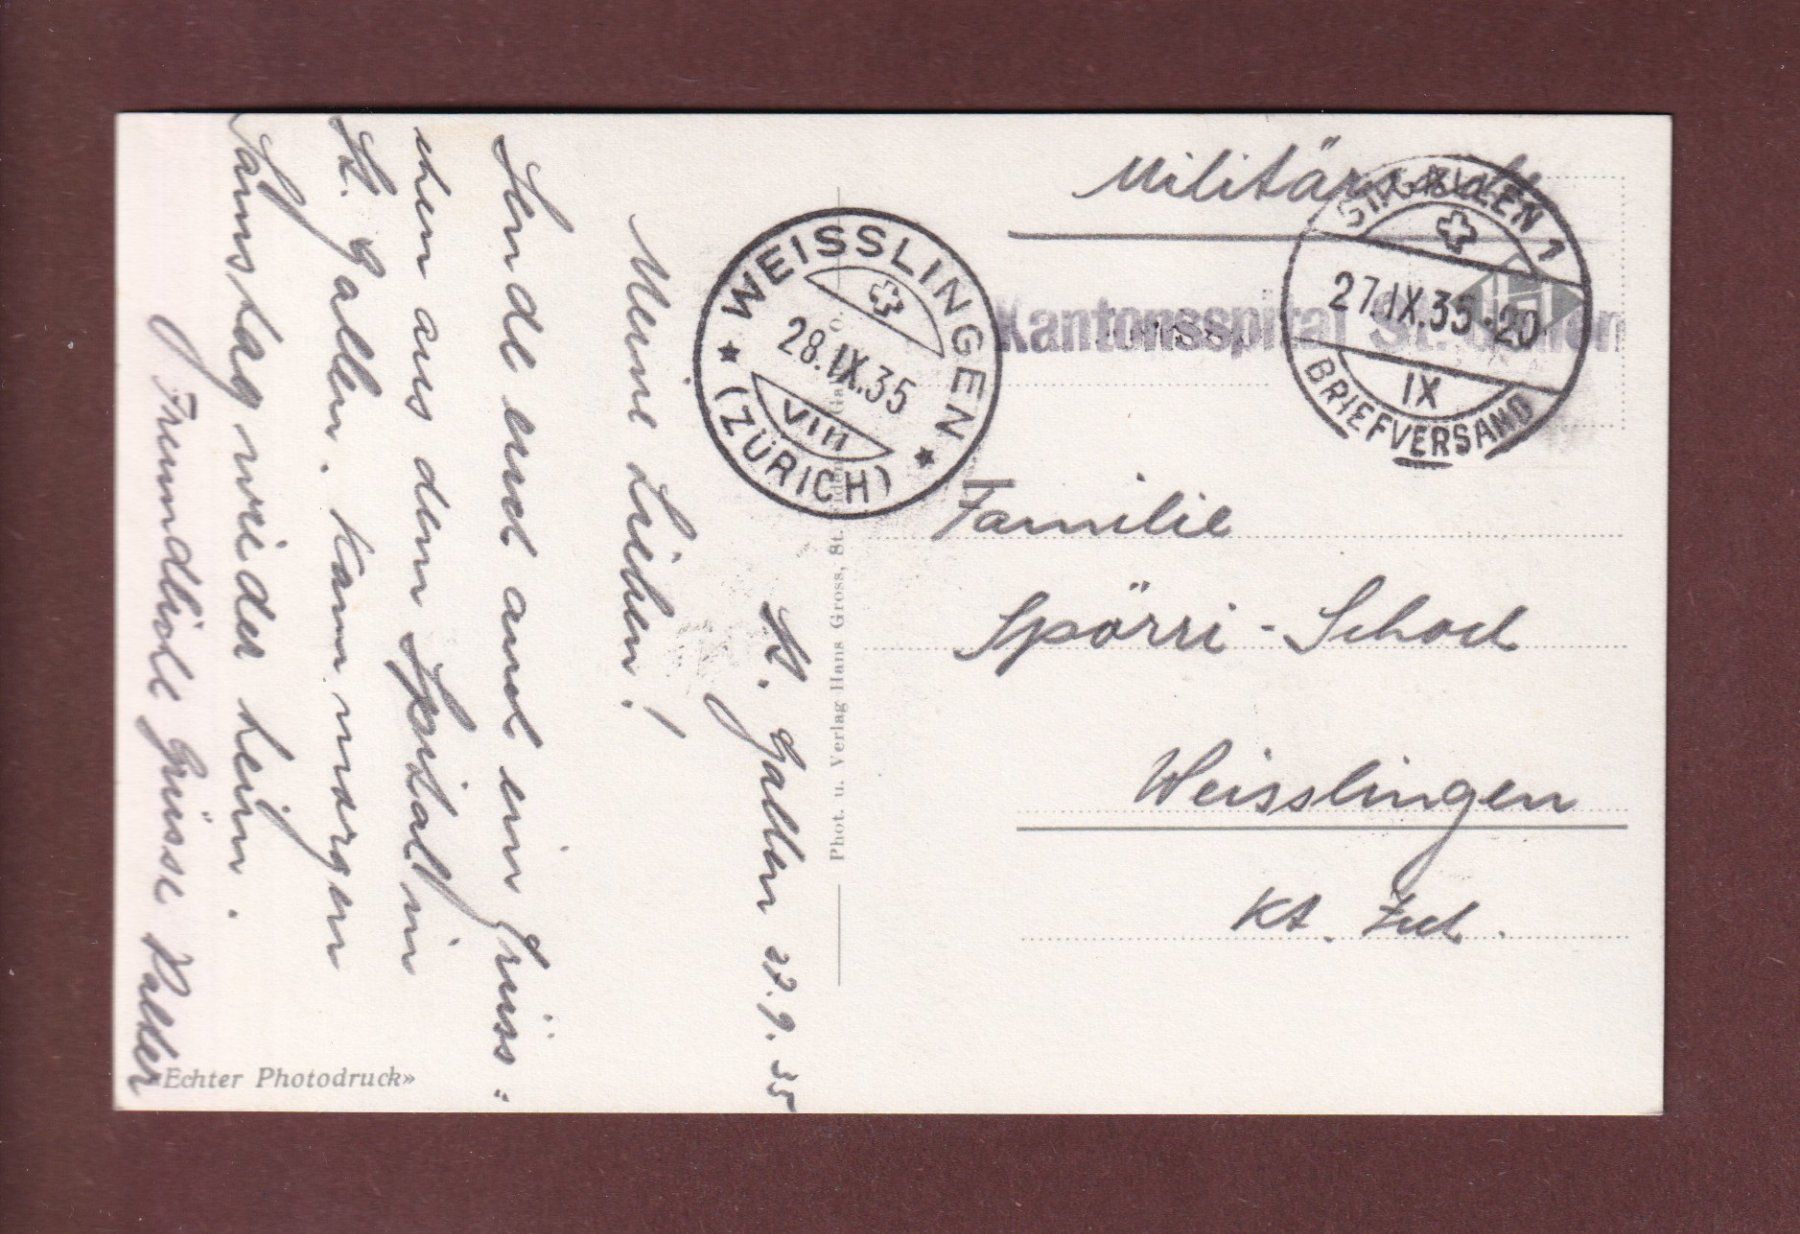 St. Gallen 27.9.35
Meine Lieben!
Sende euch auch ein Grüss-
chen aus dem Spital in
St. Gallen. Kann morgen
Samstag wieder heim.
Freundliche Grüsse Walter
«Echter Photodruck»
Phot. u. Verlag Hans Gross, St. Gallen
WEISSLINGEN
28.IX.35
VIII
(ZÜRICH)
Militär
ST. GALLEN 1
27.IX.35-20
IX
BRIEFVERSAND
Kantonsspital St. Gallen
Familie
Spörri-Schoch
Weisslingen
Kt. Zch.